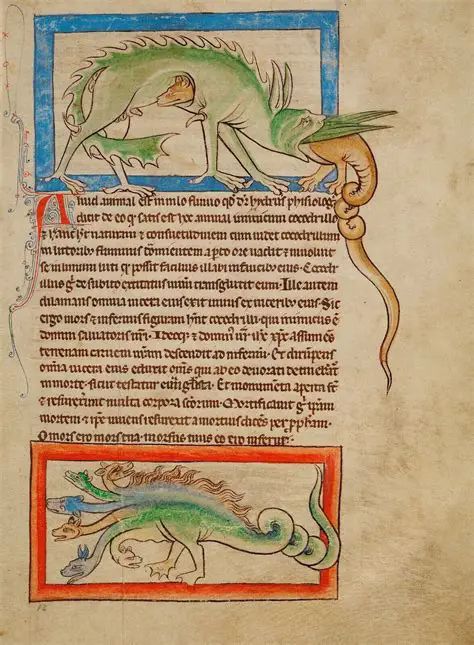 Aliud animal est in nilo fluvio qd dr hydrus phisiolog'
dicit de eo q satis est hoc animal inimicum cocodrillo
& hanc ht naturam & consuetudinem cum videt cocodrillum
in littoribus fluminis dormientem aperto ore vadit & involvit
se in limum luti qo possit facilius illabi in faucibus eius. Cocodr
illus g de subito excitatus vivum transglutit eum. Ille autem
dilanians omnia viscera eius exit vivus ex visceribus eius. Sic
ergo mors & infernus figuram hnt cocodrilli qui inimicus e
domini salvatoris nri. Ideoq & dominus nr ihc xpc assumens
terrenam carnem nram descendit ad infernum. Et dirumpens
omnia viscera eius eduxit omnes qui ab eo devorati detinebant
in morte sicut testatur euangelista. Et monumenta aperta st
& resurrexerunt multa corpora scorum. Mortificavit g ipam
mortem & ipe vivens resurrexit a mortuis dicens per pphetam.
O mors ero mors tua. morsus tuus ero inferne.